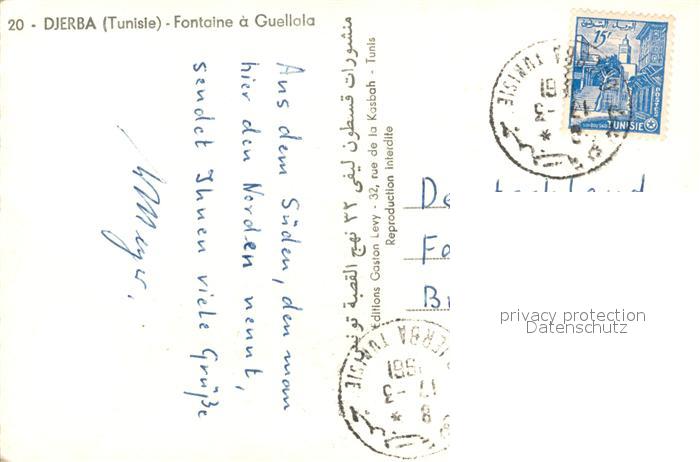 20 - DJERBA (Tunisie) - Fontaine à Guellala
Aus dem Süden, den man
hier den Norden nennt,
sendet Ihnen viele Grüße
WMeyer.
منشورات قسطون ليفي ٣٢ نهج القصبة تونس
Editions Gaston Levy - 32, rue de la Kasbah - Tunis
Reproduction interdite
15F
TUNISIE
TUNISIE
1961
DJERBA TUNISIE
17 -3
1961
Deutschland
Fo
Br
privacy protection
Datenschutz